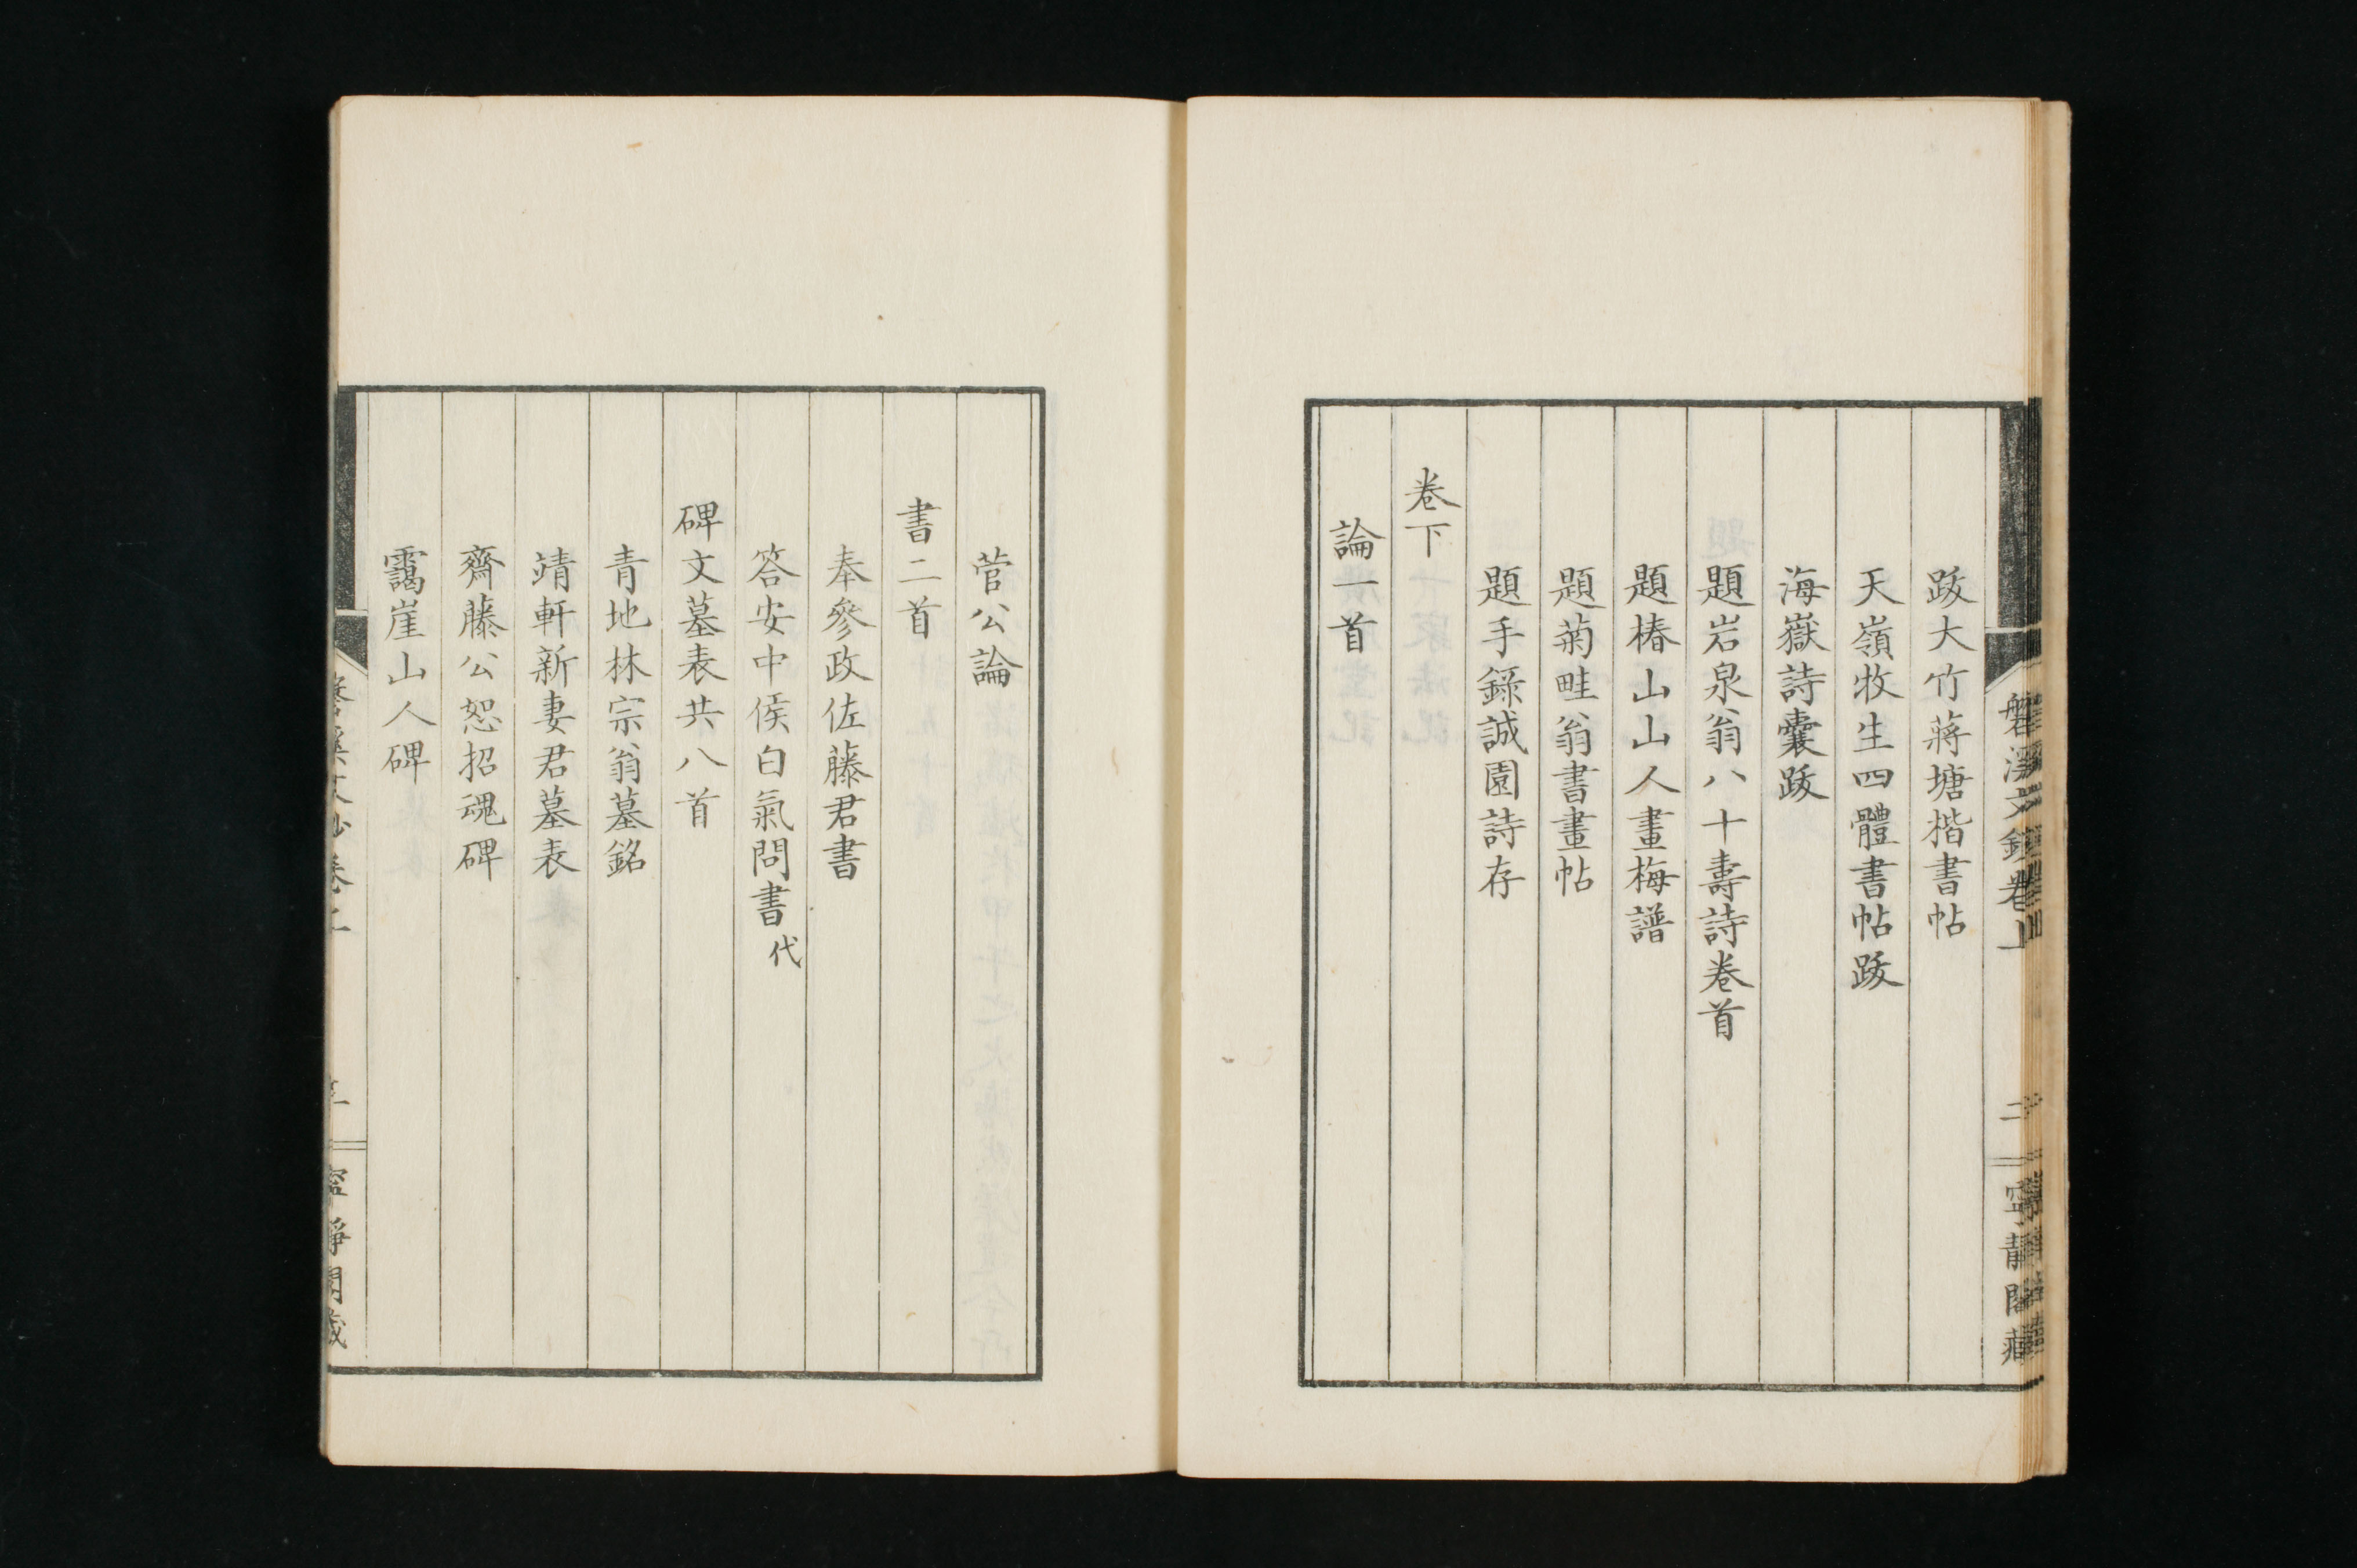 跋大竹蔣塘楷書帖
天嶺牧生四體書帖跋
海嶽詩囊跋
題岩泉翁八十壽詩卷首
題椿山山人畫梅譜
題菊畦翁書畫帖
題手錄誠園詩存
卷下
論一首
菅公論
書二首
奉參政佐藤君書
答安中侯白氣問書代
碑文墓表共八首
青地林宗翁墓銘
靖軒新妻君墓表
齊藤公恕招魂碑
靄崖山人碑